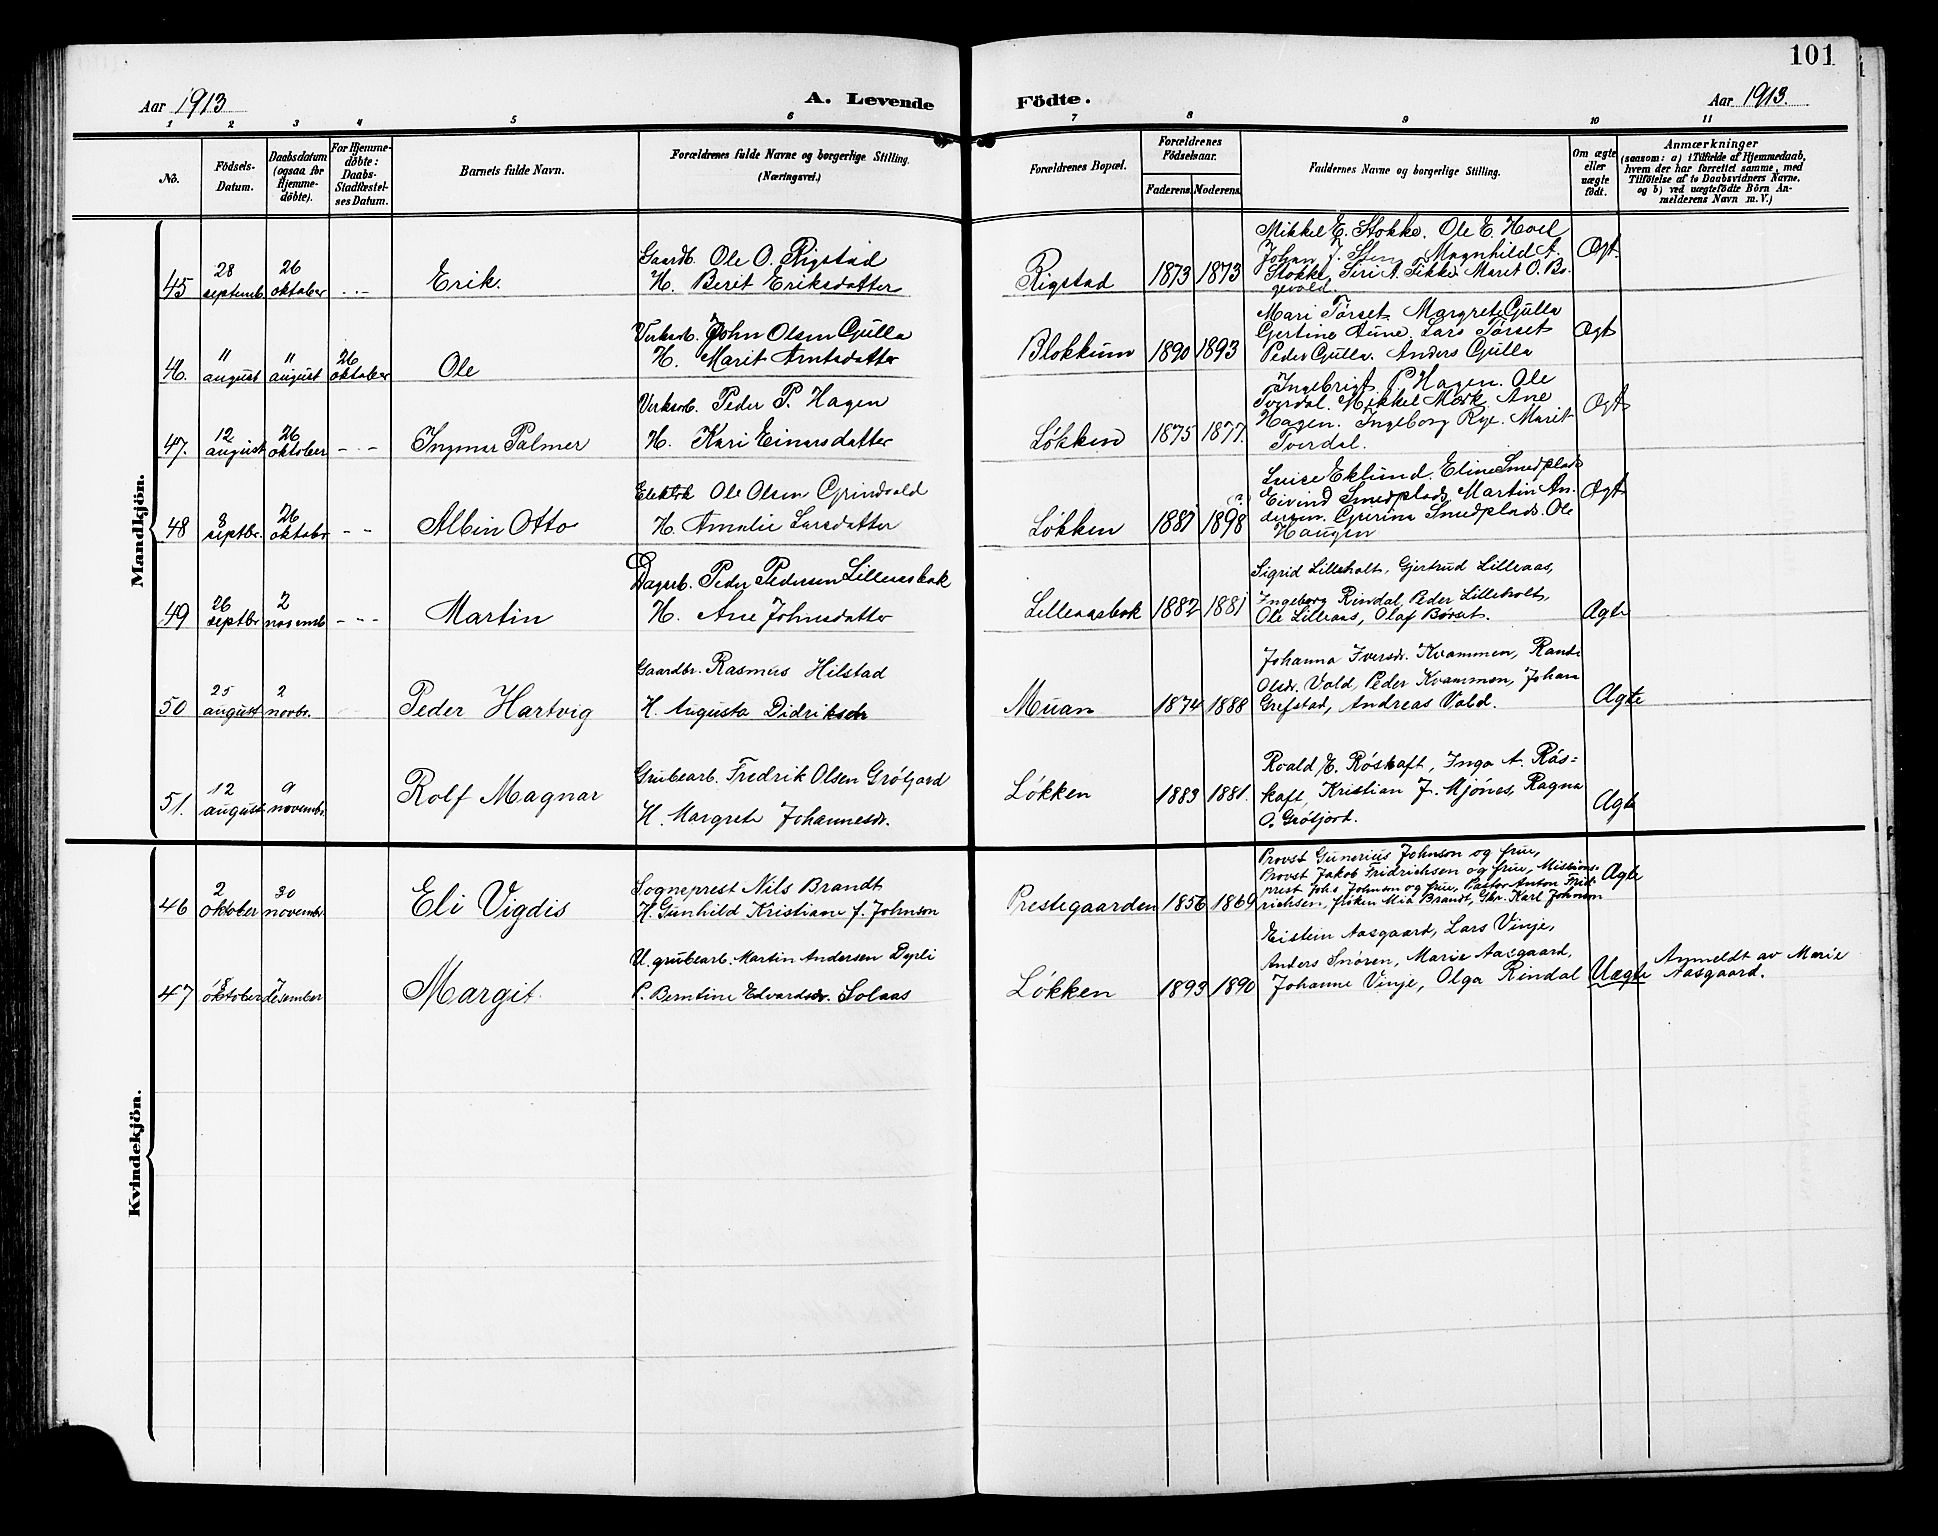 101
Aar 1913
A. Levende
Födte.
Aar 1913.
1 2 3 4 5 6 7 8 9 10 11
No.
Födsels-
Datum.
Daabsdatum
(ogsaa for
Hjemme-
döbte).
For Hjemme-
döbte:
Daabs-
Stadfæstel-
ses Datum.
Barnets fulde Navn.
Forældrenes fulde Navne og borgerlige Stilling.
(Næringsvei.)
Forældrenes Bopæl.
Forældrenes
Födselsaar.
Faderens. Moderens.
Faddernes Navne og borgerlige Stilling.
Om ægte
eller
uægte
födt.
Anmærkninger
(saasom: a) i Tilfælde af Hjemmedaab,
hvem der har forrettet samme, med
Tilföielse af to Daabsvidners Navne,
og b) ved uægtefödte Börn An-
melderens Navn m. V.)
Mandkjön.
45
28
septemb.
26
oktober
- - -
Erik.
Gaardb. Ole O. Rigstad
H. Berit Eriksdatter
Rigstad
1873 1873
Mikkel E. Stokke. Ole E. Hoel
Johan J. Sten, Magnhild A.
Stokke, Siri A. Fikke Marit O. Bo-
gevold.
Ægt.
46.
11
august
11
august
26
oktober
Ole
Verksarb. John Olsen Gulla
H. Marit Arntsdatter
Blokkum
1890 1893
Mari Tørset, Margrete Gulla
Gjertine Aune, Lars Tørset
Peder Gulla. Anders Gulla
Ægt
47.
12
august
26
oktober
- - -
Ingmar Palmer
Verksarb. Peder P. Hagen
H. Kari Einarsdatter
Løkken
1875 1877.
Ingebrigt P. Hagen. Ole
Tverdal. Mikkel Mørk, Ane
Hagen. Ingeborg Rye. Marit
Tverdal.
Ægt
48
8
septbr.
26
oktobr
- -
Albin Otto
Elektrik Ole Olsen Grindvold
H. Amalie Larsdatter
Løkken
1887 1898
Luise Eklund. Eline Smedplads
Eivind Smedplads, Martin An-
dersen. Gurina Smedplads. Ole
Haugen
Ægt
49
26
septbr
2
novemb
- - -
Martin
Dagarb. Peder Pedersen Lilleaasbak
H. Ane Johnsdatter
Lilleaasbak
1882 1881
Sigrid Lilleholt, Gjertrud Lilleaas,
Ingeborg Rindal, Peder Lilleholt,
Ole Lilleaas, Olaf Børset.
Ægte
50
25
august
2
novbr.
Peder Hartvig
Gaardbr. Rasmus Hilstad
H. Augusta Didriksdr
Muan
1874 1888
Johanna Iversdr. Kvammen, Randi
Olsdr. Vold, Peder Kvammen, Johan
Grefstad, Andreas Vold.
Ægte
51.
12
august
9
novembr.
Rolf Magnar
Grubearb. Fredrik Olsen Grøtjord
H. Margrete Johannesdr.
Løkken
1883 1881.
Roald E. Røskaft, Inga A. Røs-
kaft, Kristian J. Mjønes, Ragna
O. Grøtjord.
Ægte
Kvindekjön.
46
2
oktober
30
novembr.
Eli Vigdis
Sogneprest Nils Brandt
H. Gunhild Kristiane f. Johnson
Prestegaarden
1856 1869
Provst Gunerius Johnson og frue,
Provst Jakob Fridrichsen og frue, Missions-
prest Johs. Johnson og frue, Pastor Anton Frid-
richsen, frøken Mia Brandt, Gbr. Karl Johnson
Ægte
47
oktober
7
desember
Margit.
U. grubearb. Martin Andersen Dypli
P. Berntine Edvardsdr. Solaas
Løkken
1893 1890
Eistein Aasgaard, Lars Vinje,
Anders Snøren, Marie Aasgaard,
Johanne Vinje, Olga Rindal
Uægte
Anmeldt av Marie
Aasgaard.